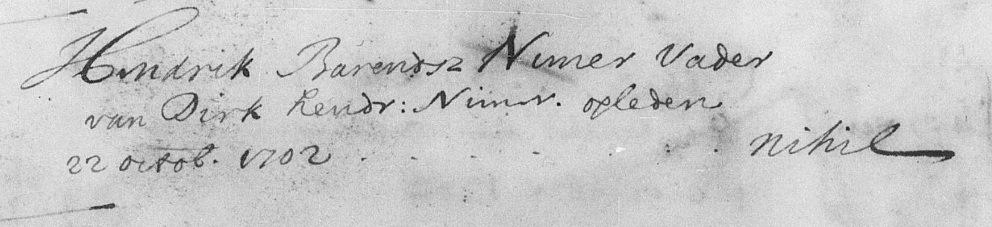 Hendrik Barendsz Nimer Vader
van Dirk hendr: Nimer. opleden
22 octob. 1702 . . . . . . . nihil